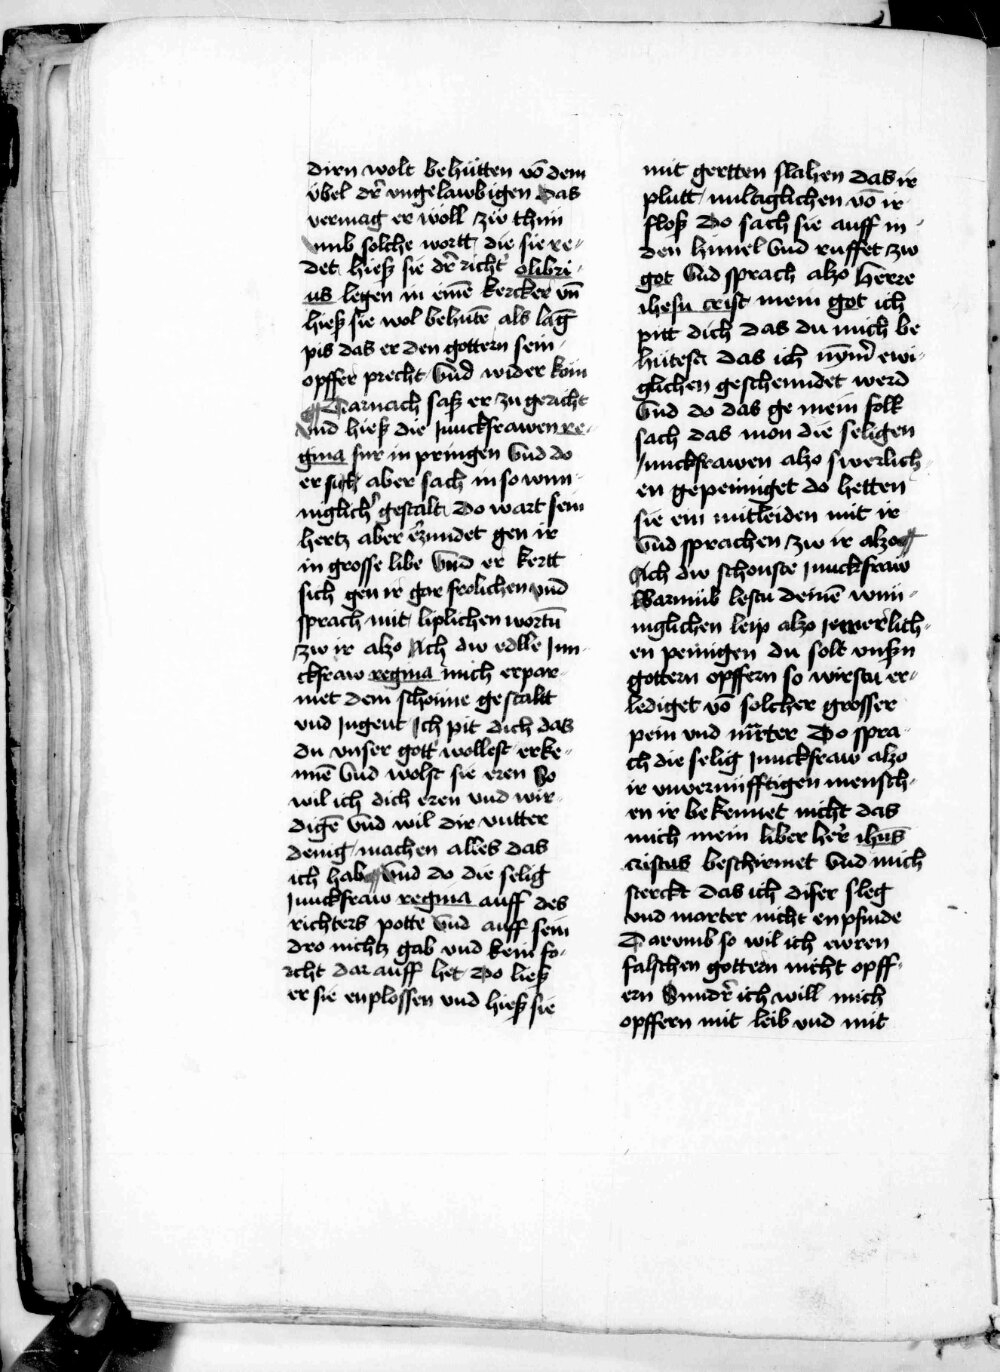 dirn wolt behütten vō dem
übel dr̄ vngelawbigen Das
vermag er woll zw thun
vmb solche wortt die sie re-
det hieß sie dr̄ richt' olibri-
us legen in einē kercker vn̄
hieß sie wol behütē als lāg
pis das er den gottern sein
opffer precht Vnd wider kom
Darnach saß er zu gericht
vnd hieß die Junckfrawen re-
gina für in pringen Vnd do
er sich aber sach in so wun-
niglich' gestalt Do wart sein
hertz aber ēzundet gen ir
in grosse libe Vnd er kertt
sich gen ir gar frolichen vnd
sprach mit liplichen wortū
zw ir also Ach dw edlle Jun-
ckfraw regina mich erpar-
met dem schonne gestaltt
vnd Jugent Ich pit dich das
du vnser gott wollest erke-
nnē Vnd wolst sie eren So
wil ich dich eren vnd wir-
digē Vnd wil dir vntter
denig machen alles das
ich hab Vnd do die selig
Junckfraw regina auff des
richters potte Vnd auff sein
dro nichtz gab vnd kein fo-
rcht dar auff het Do ließ
er sie enplossen vnd hieß sie
mit gertten slahen das ir
plutt miltiglichen vō ir
floß Do sach sie auff in
den himel Vnd ruffet zw
got Vnd sprach also Herre
ihesu crist mein got ich
pitt dich das du mich be
hütest das ich nȳm̄ ewi-
glichen geschenndet werd
Vnd do das ge mein folk
sach das mon die seligen
Junckfrawen also swerlich-
en gepeiniget do hetten
sie ein mitleiden mit ir
Vnd sprachen zw ir also
Ach dw schonste Junckfraw
Warumb lestu deinē wun-
niglichen leip also Jemerlich-
en peinigen du solt vnßn
gottern opffern so wirstu er-
lediget vō solcher grosser
pein vnd mr̄ter Do spra-
ch die selig Junckfraw also
ir vnvernüfftigen mensch-
en ir bekennet nicht das
mich mein liber her' ihus̄
cristus beschirmet Vnd mich
sterckt das ich diser sleg
vnd marter nicht enpfinde
Darvmb so wil ich ewren
falschen gottern nicht opff-
ern Sundr̄ ich will mich
opffern mit leib vnd mit